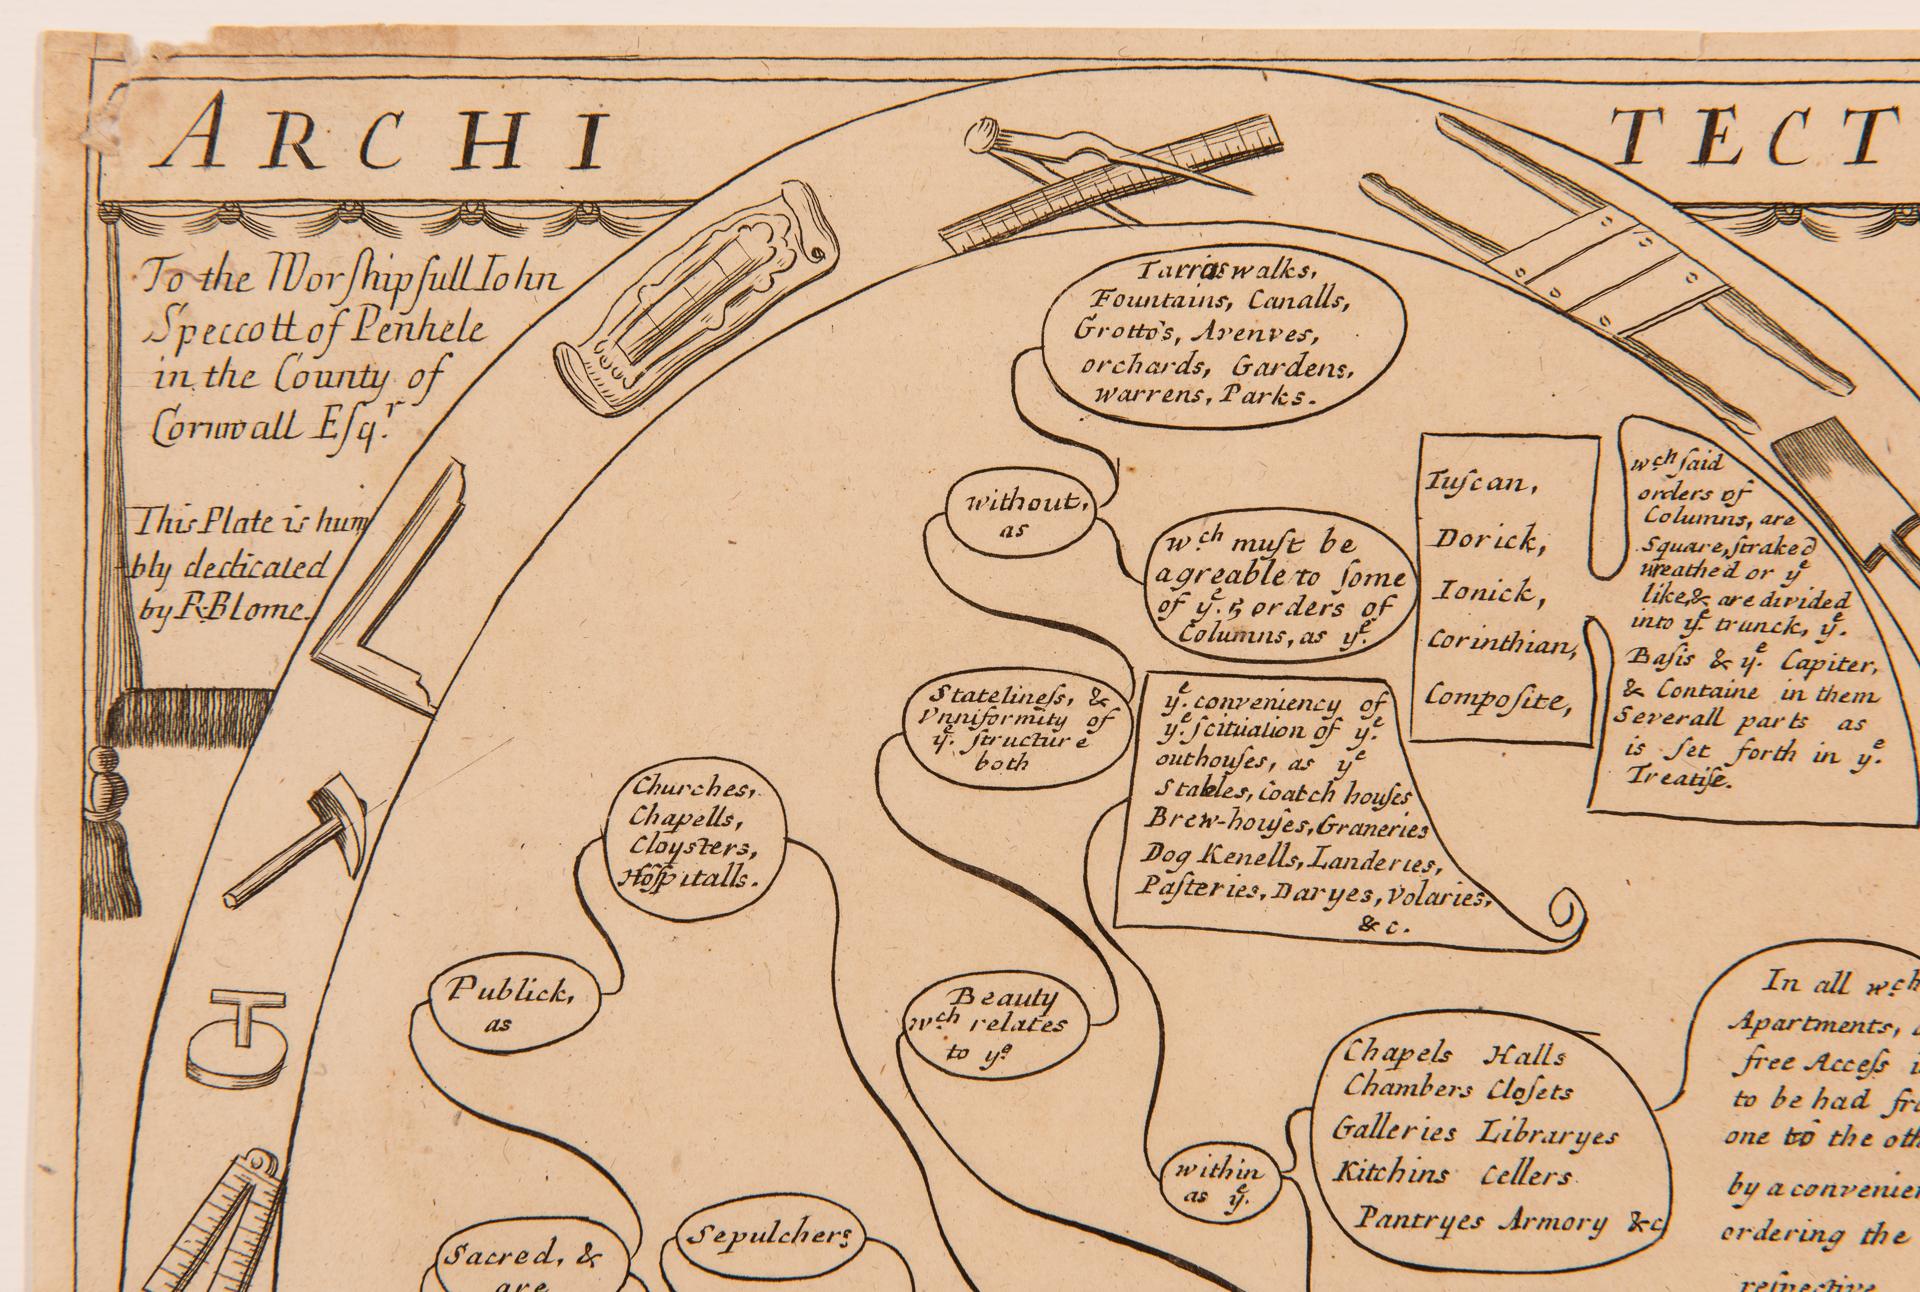 ARCHI TECT
To the Worſhipfull Iohn
Speccott of Penhele
in the County of
Cornwall Eſqr.
This Plate is hum
bly dedicated
by R. Blome.
Tarras walks,
Fountains, Canalls,
Grotto's, Avenves,
orchards, Gardens,
warrens, Parks.
without,
as
wch muſt be
agreable to ſome
of ye. 5 orders of
Columns, as ye.
Tuſcan,
Dorick,
Ionick,
Corinthian,
Compoſite,
wch ſaid
orders of
Columns, are
Square, ſtraked
wreathed or ye
like, & are divided
into ye. trunck, ye.
Baſis & ye. Capiter,
& Containe in them
Severall parts as
is ſet forth in ye.
Treatiſe.
Statelineſs, &
Vnniformity of
ye. ſtructure
both
ye. conveniency of
ye. ſcituation of ye.
outhouſes, as ye
Stables, Coatch houſes
Brew-houſes, Graneries
Dog Kenells, Landeries,
Paſteries, Daryes, Volaries,
&c.
Churches,
Chapells,
Cloysters,
Hoſpitalls.
Publick,
as
Beauty
wch relates
to ye
within
as ye.
Chapels Halls
Chambers Cloſets
Galleries Libraryes
Kitchins Cellers
Pantryes Armory &c
In all wch
Apartments,
free Acceſs
to be had
one to the
by a
ordering the
reſpective
Sepulchers
Sacred, &
are